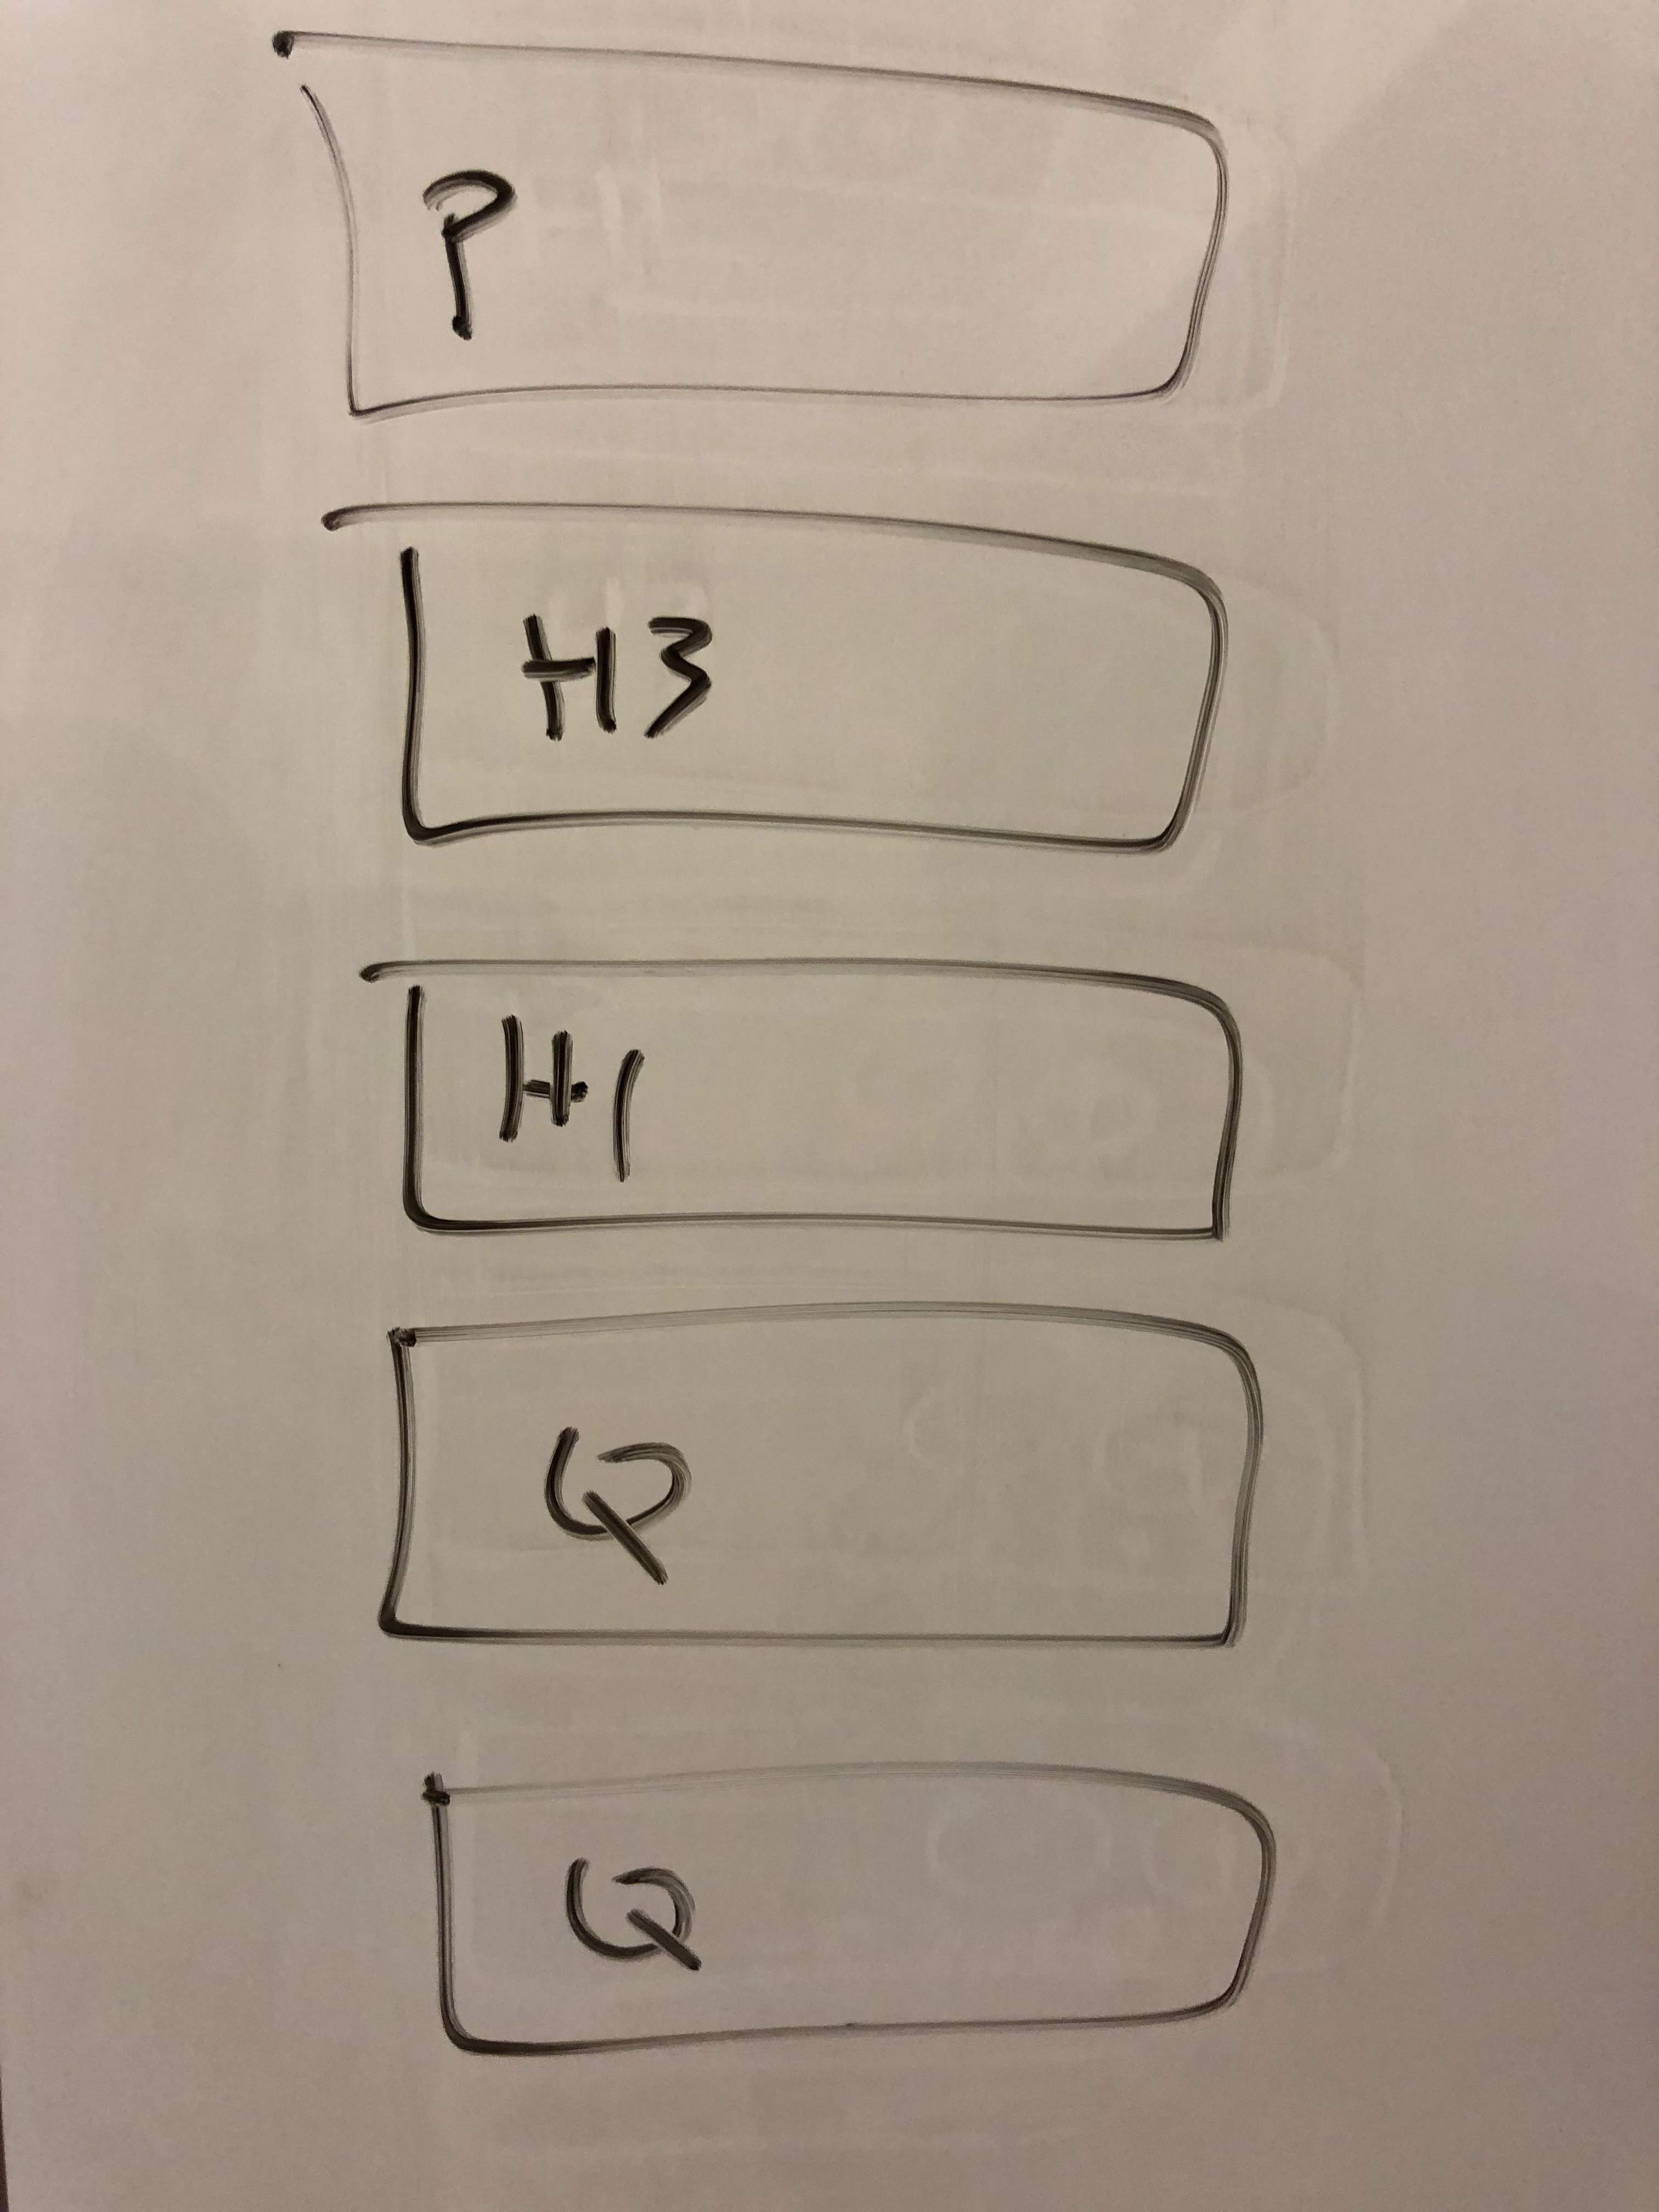 P
H3
H1
Q
Q